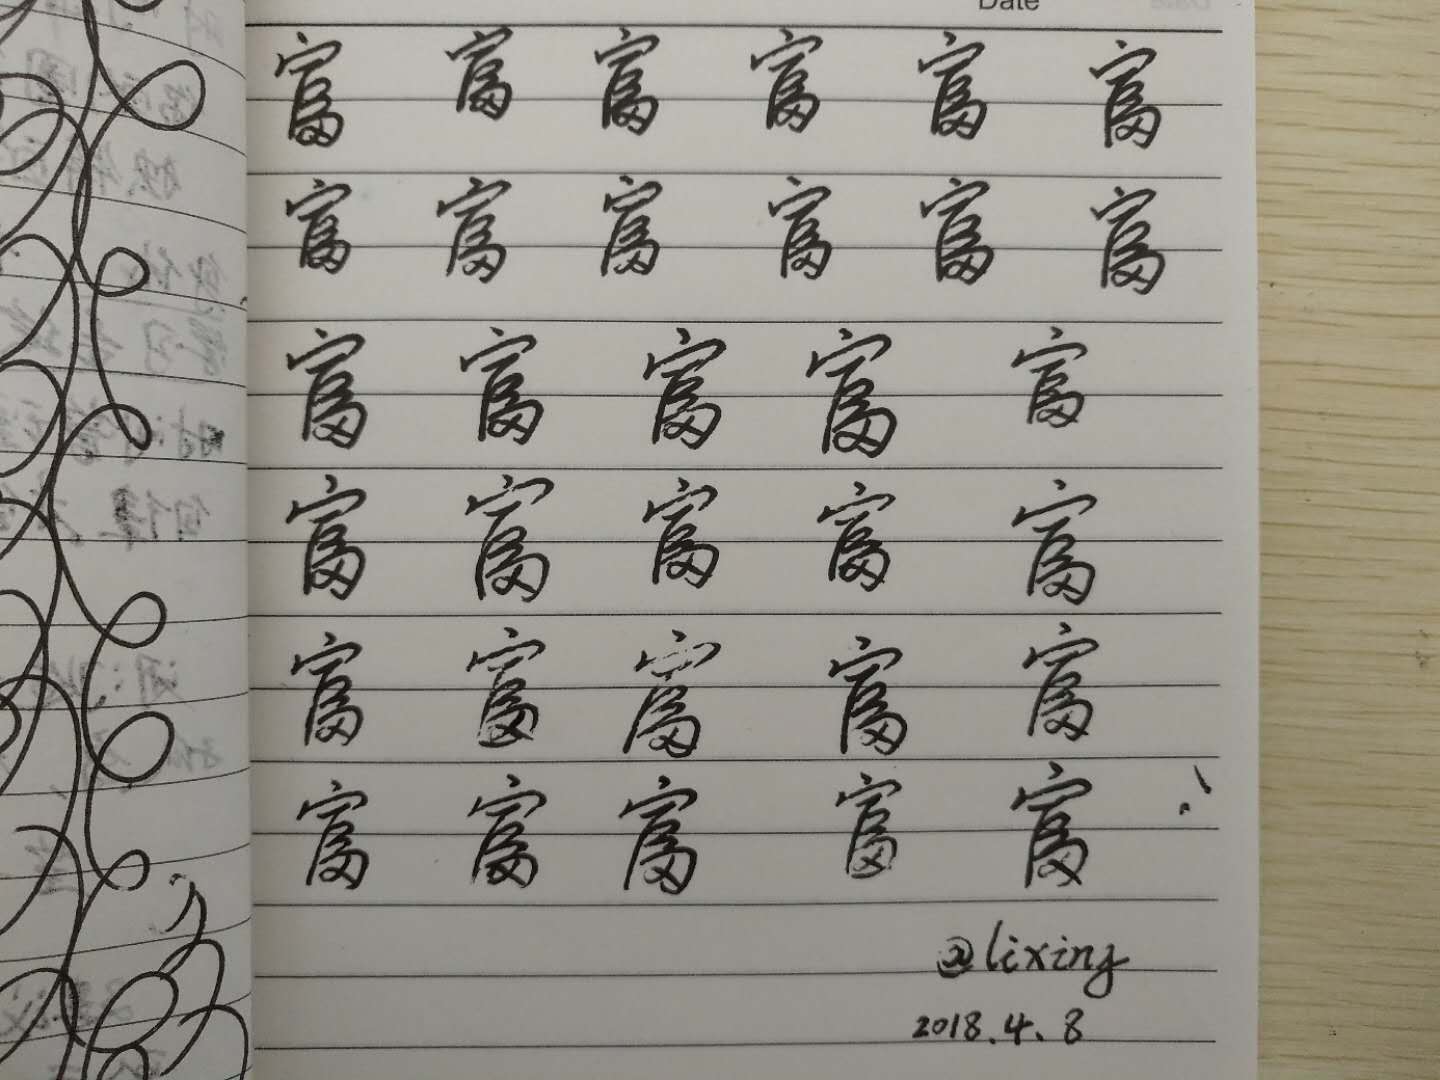 Date
富 富 富 富 富 富
富 富 富 富 富 富
富 富 富 富 富
富 富 富 富 富
富 富 富 富 富
富 富 富 富 富
@lixing
2018.4.8